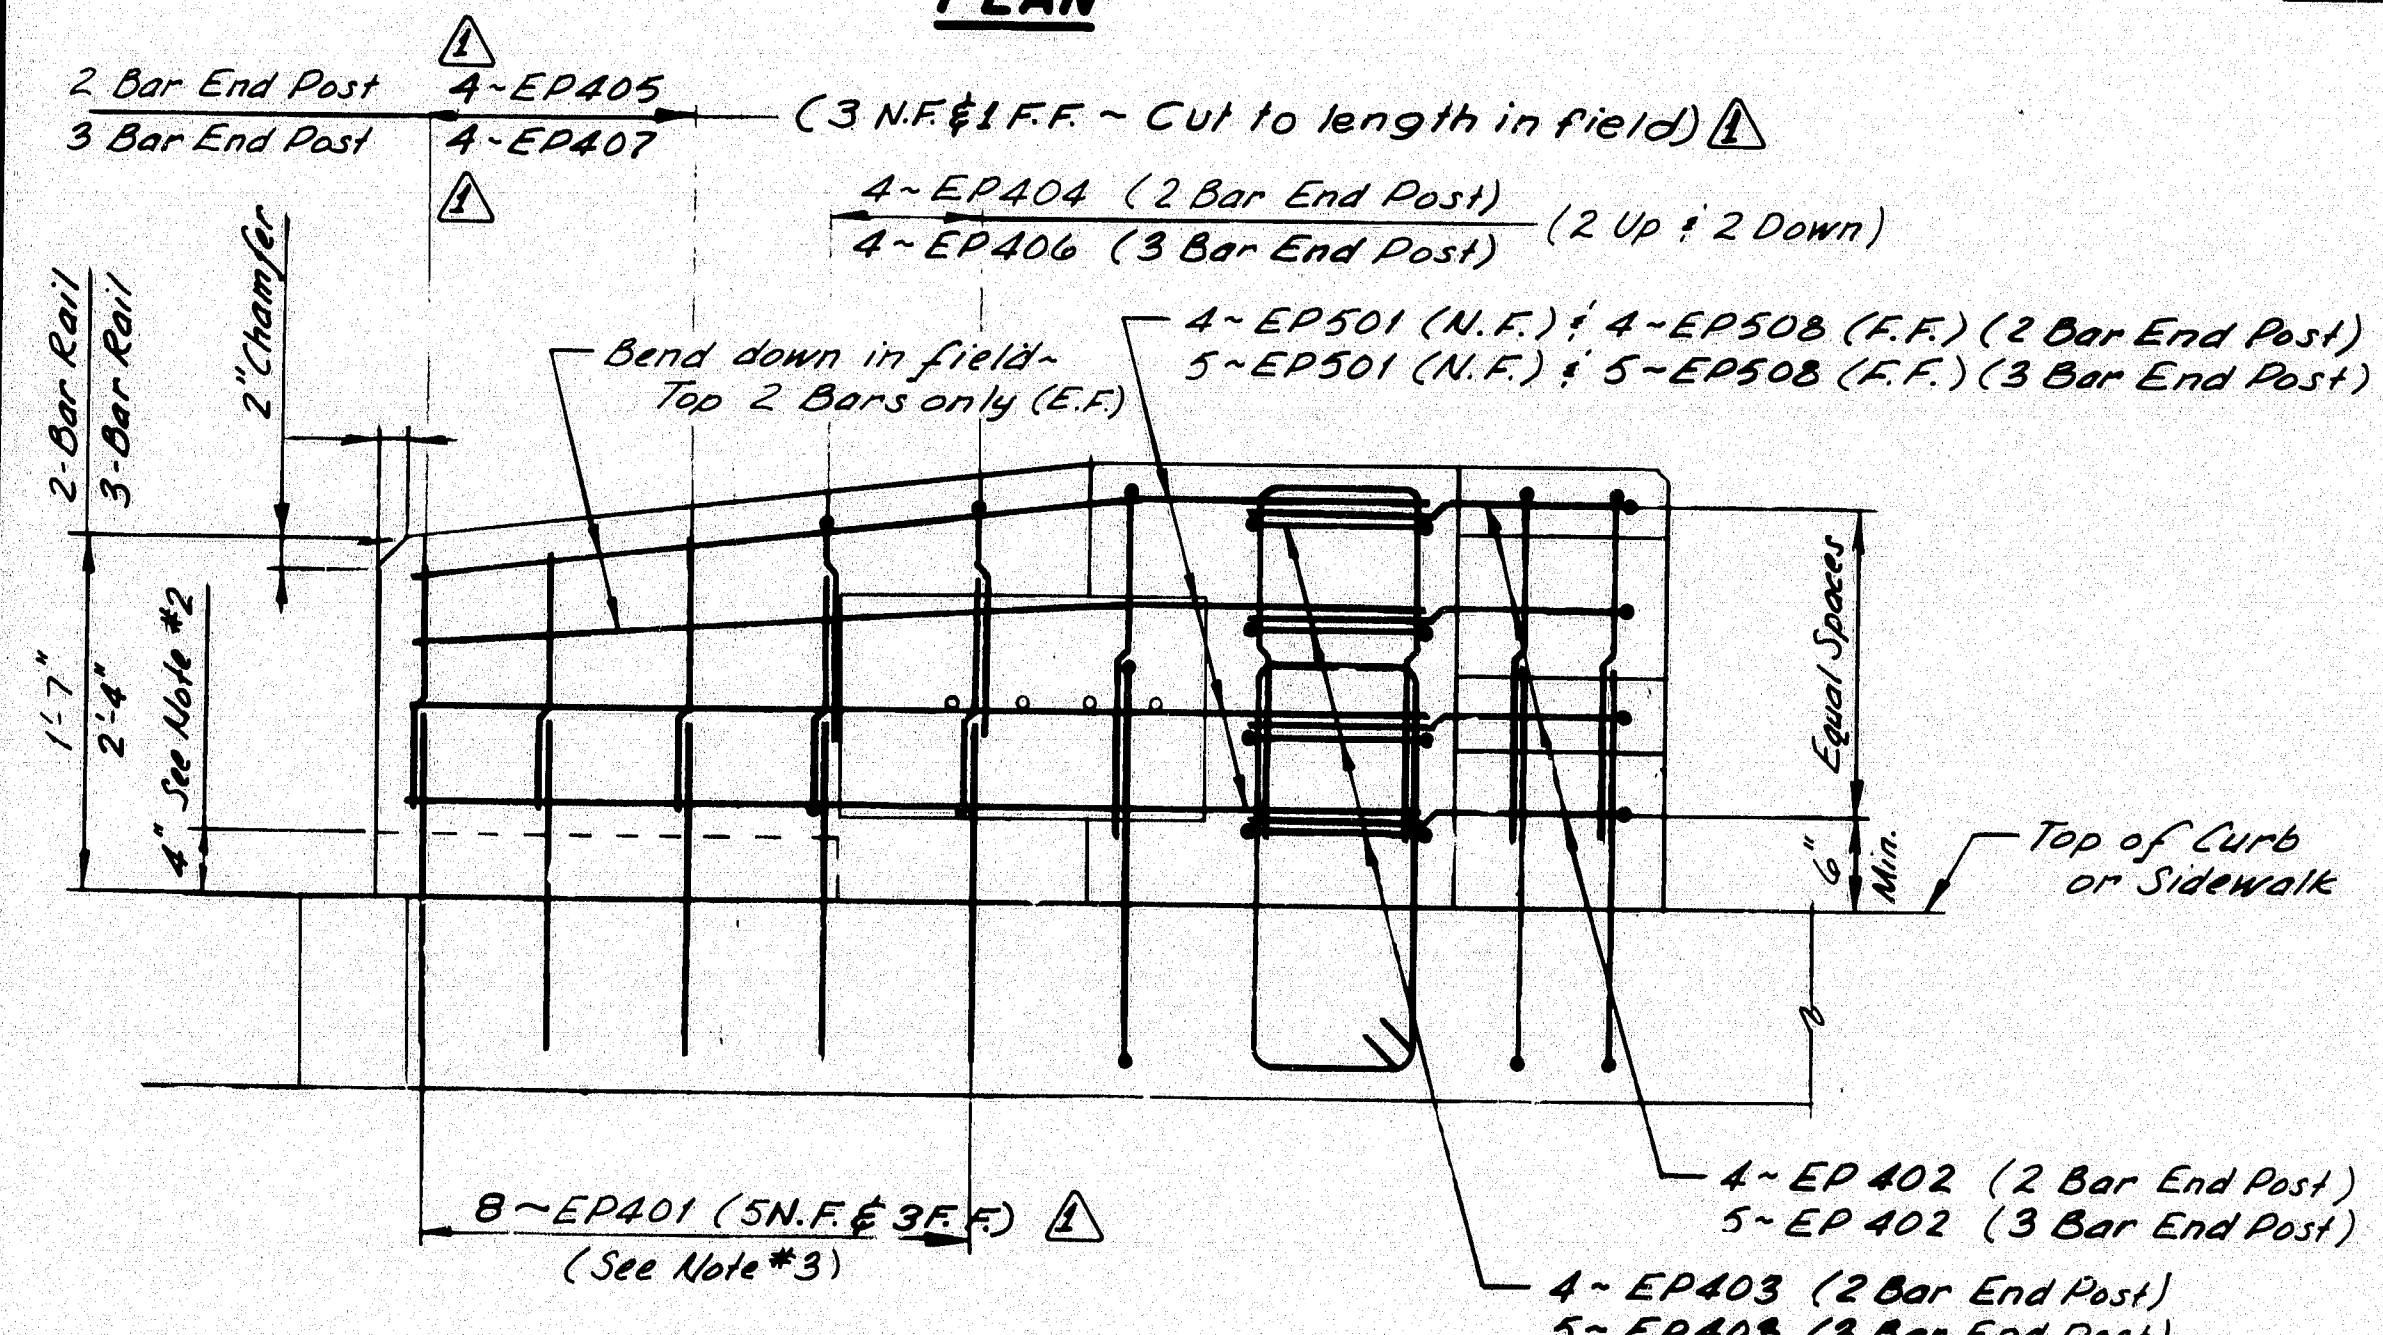 PLAN
1
2 Bar End Post 4~EP405
3 Bar End Post 4~EP407
(3 N.F. & 1 F.F. ~ Cut to length in field) 1
1
4~EP404 (2 Bar End Post)
4~EP406 (3 Bar End Post)
(2 Up & 2 Down)
2-Bar Rail
3-Bar Rail
2" Chamfer
4~EP501 (N.F.) & 4~EP508 (F.F.) (2 Bar End Post)
5~EP501 (N.F.) & 5~EP508 (F.F.) (3 Bar End Post)
Bend down in field~
Top 2 Bars only (E.F.)
1'-7"
2'-4"
4" See Note #2
Equal Spaces
6"
Min.
Top of Curb
or Sidewalk
8~EP401 (5N.F. & 3F.F.) 1
(See Note #3)
4~EP402 (2 Bar End Post)
5~EP402 (3 Bar End Post)
4~EP403 (2 Bar End Post)
5~EP403 (3 Bar End Post)